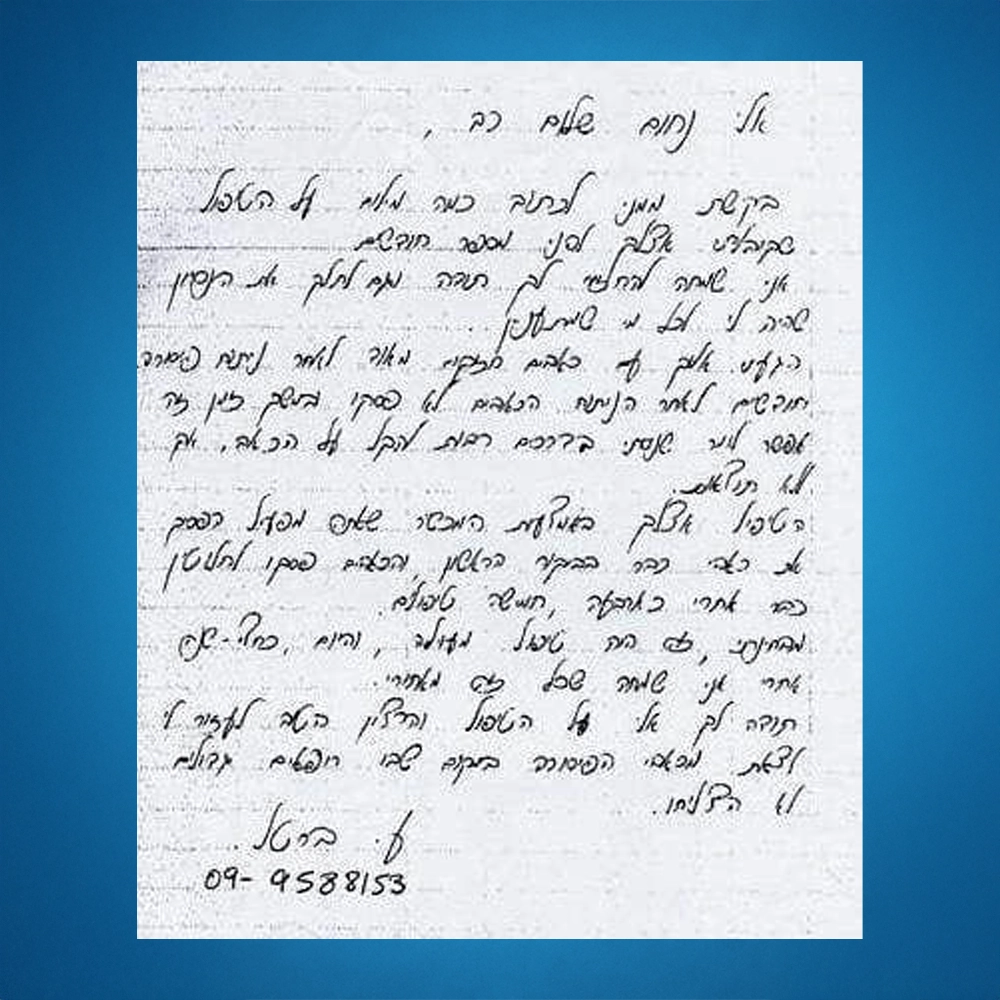 אלי נחום שלום רב,
בקשת ממני לכתוב כמה מילים על הטפול
שקיבלתי אצלך לפני מספר חודשים
אני שמחה להחליף לך תודה וגם לחלק את הנסיון
שהיה לי לכל מי שמתענין.
הגעתי אליך עם כאבים חזקים מאוד לאחר ניתוח פיסורה
חודשים לאחר הניתוח הכאבים לא פסקו ובמשך זמן זה
אפשר לומר שנסיתי בדרכים רבות להקל על הכאב, אך
ללא תוצאות.
הטיפול אצלך באמצעות המכשר שאתה מפעיל הפסיק
את כאבי כבר בביקור הראשון והכאבים פסקו לחלוטין
כבר אחרי כארבעה, חמישה טיפולים.
מבחינתי, זה היה טיפול מעולה, והיום, כחצי-שנה
אחרי אני שמחה שכל זה מאחורי.
תודה לך אלי על הטיפול והרצון הטוב לעזור לי
לצאת מכאבי הפיסורה במקום שבו רופאים גדולים
לא הצליחו.
ע. ברטל.
09-9588153